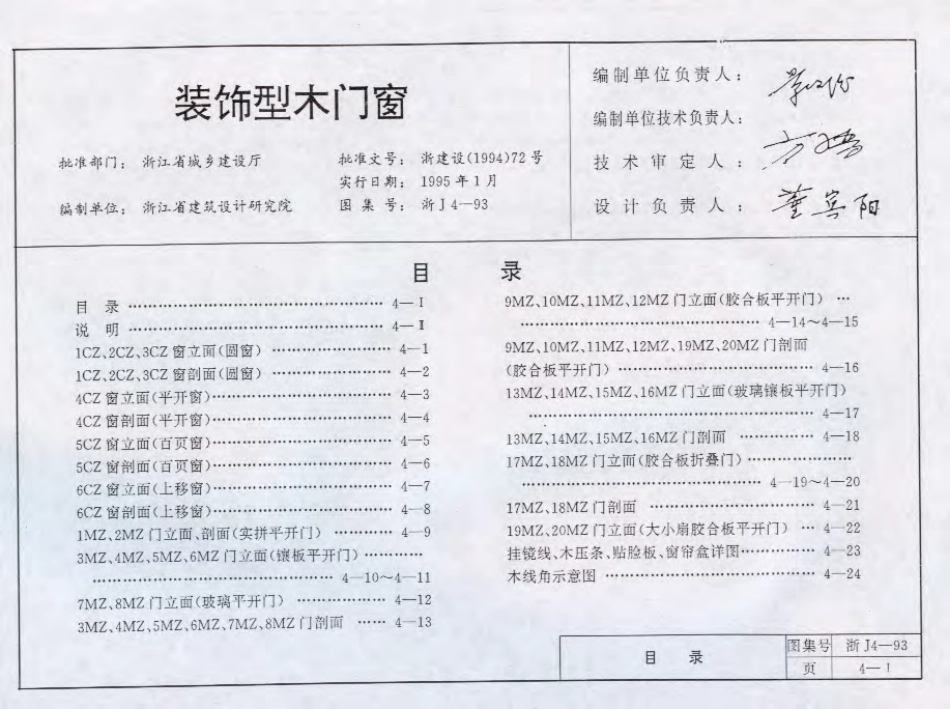 装饰型木门窗
批准部门：浙江省城乡建设厅
批准文号：浙建设(1994)72号
实行日期：1995年1月
编制单位：浙江省建筑设计研究院
图集号：浙J4—93
编制单位负责人：
编制单位技术负责人：
技术审定人：
设计负责人：董宾阳
目 录
目 录 …… 4—I
说 明 …… 4—Ⅱ
1CZ、2CZ、3CZ窗立面(圆窗) …… 4—1
1CZ、2CZ、3CZ窗剖面(圆窗) …… 4—2
4CZ窗立面(平开窗) …… 4—3
4CZ窗剖面(平开窗) …… 4—4
5CZ窗立面(百页窗) …… 4—5
5CZ窗剖面(百页窗) …… 4—6
6CZ窗立面(上移窗) …… 4—7
6CZ窗剖面(上移窗) …… 4—8
1MZ、2MZ门立面、剖面(实拼平开门) …… 4—9
3MZ、4MZ、5MZ、6MZ门立面(镶板平开门) ……
…… 4—10～4—11
7MZ、8MZ门立面(玻璃平开门) …… 4—12
3MZ、4MZ、5MZ、6MZ、7MZ、8MZ门剖面 …… 4—13
9MZ、10MZ、11MZ、12MZ门立面(胶合板平开门) …
…… 4—14～4—15
9MZ、10MZ、11MZ、12MZ、19MZ、20MZ门剖面
(胶合板平开门) …… 4—16
13MZ、14MZ、15MZ、16MZ门立面(玻璃镶板平开门)
…… 4—17
13MZ、14MZ、15MZ、16MZ门剖面 …… 4—18
17MZ、18MZ门立面(胶合板折叠门) ……
…… 4—19～4—20
17MZ、18MZ门剖面 …… 4—21
19MZ、20MZ门立面(大小扇胶合板平开门) … 4—22
挂镜线、木压条、贴脸板、窗帘盒详图 …… 4—23
木线角示意图 …… 4—24
目 录
图集号 浙J4—93
页 4—I